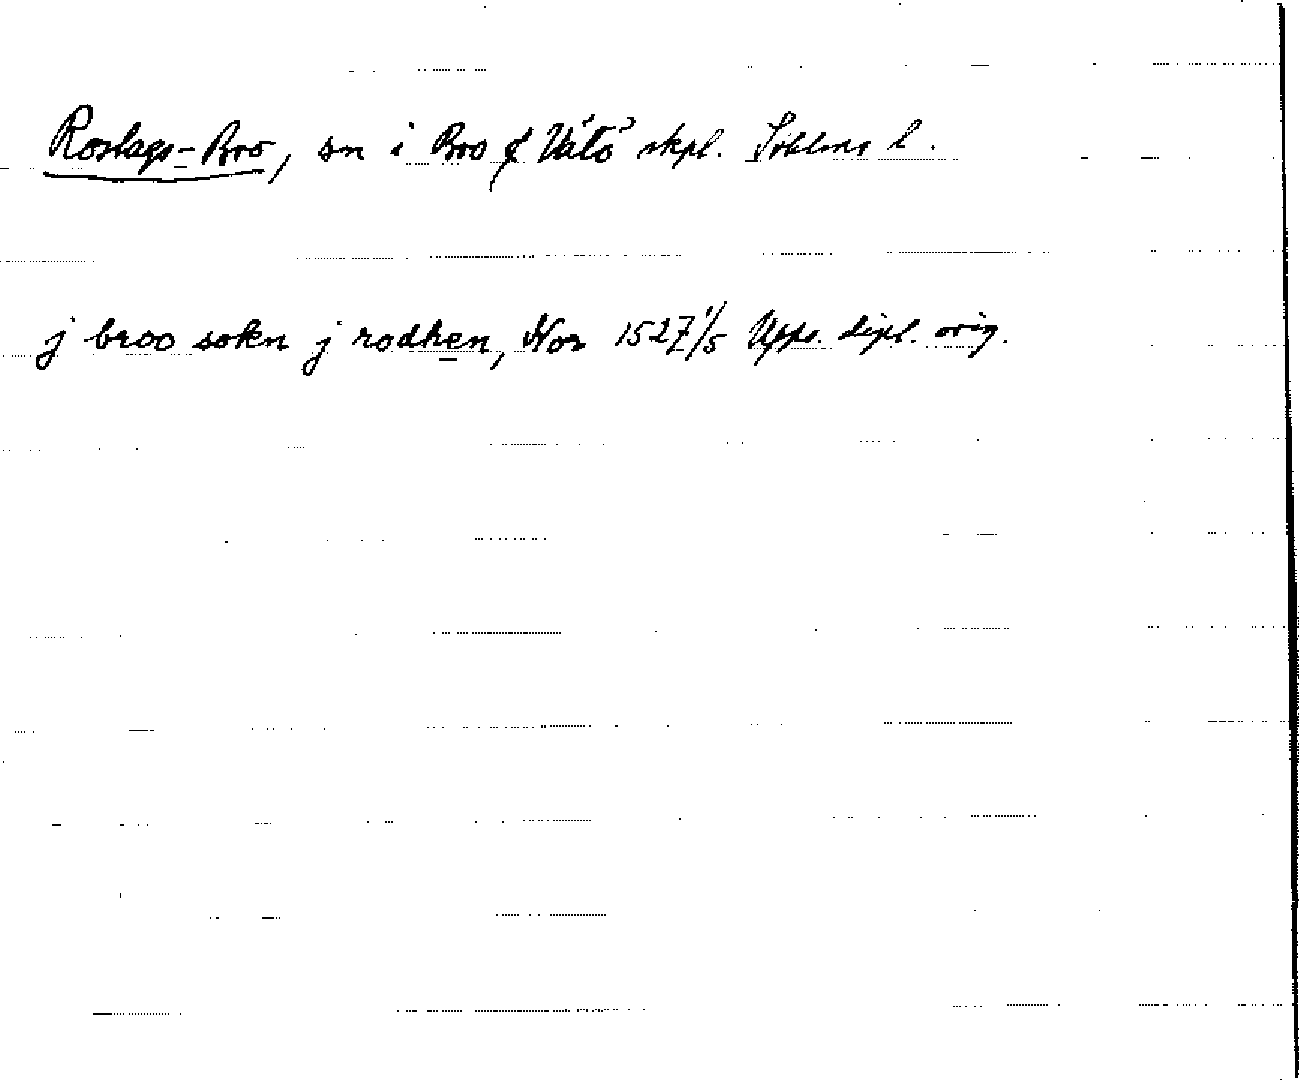 Roslags-Bro, sn i Bro & Vätö skpl. Sthlms l.
j broo sokn j rodhen, Nor 1527 1/5 Upps. dipl. orig.